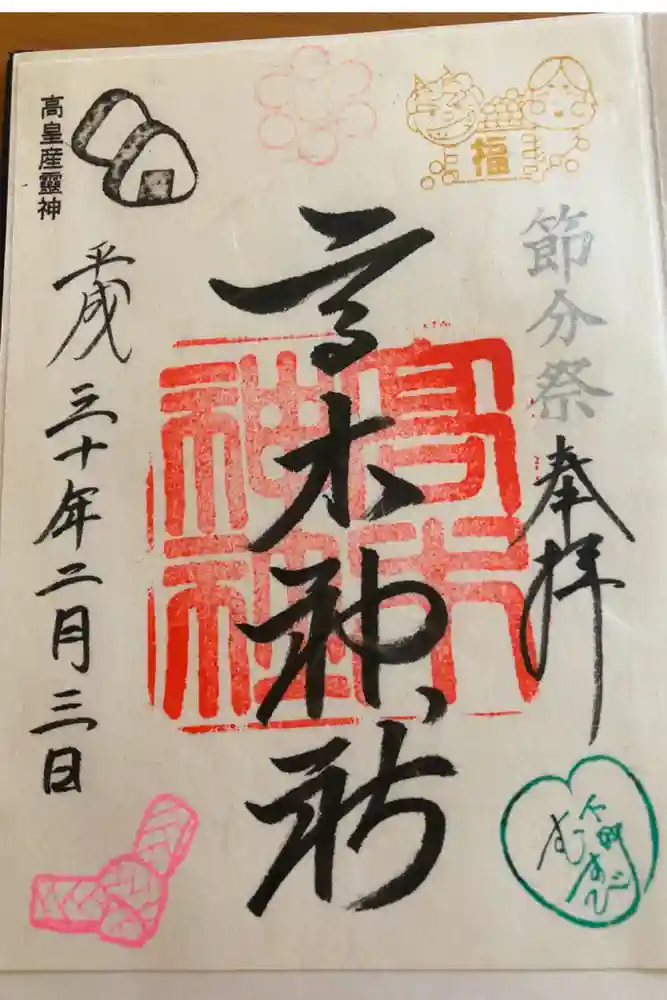 福
節分祭
奉拝
高木神社
高木神社
平成三十年二月三日
高皇産靈神